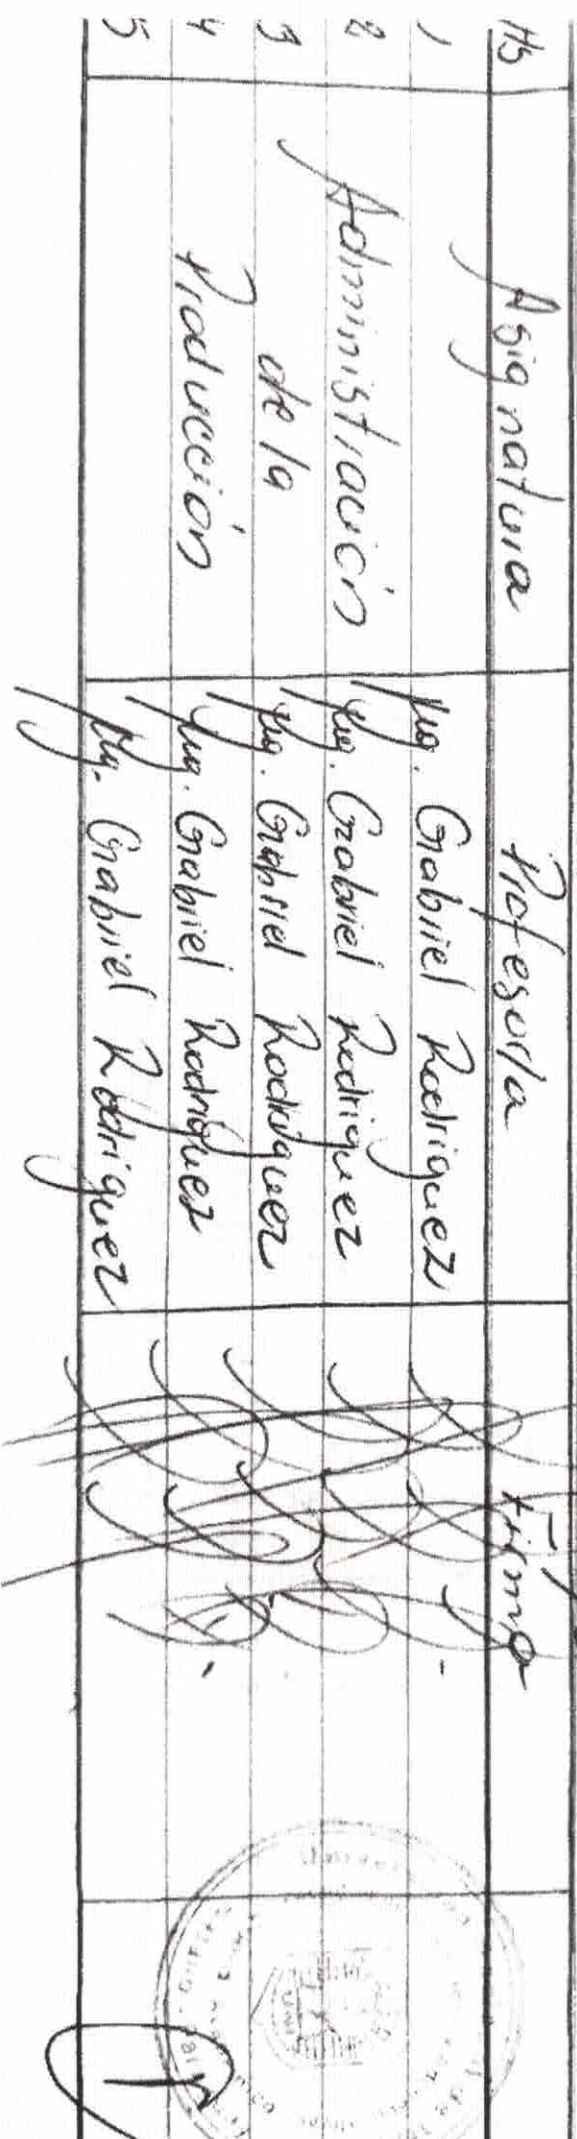 Hs Asignatura Profesor/a Firma
1 Mg. Gabriel Rodriguez
2 Administración Mg. Gabriel Rodriguez
3 de la Mg. Gabriel Rodriguez
4 Producción Mg. Gabriel Rodriguez
5 Mg. Gabriel Rodriguez